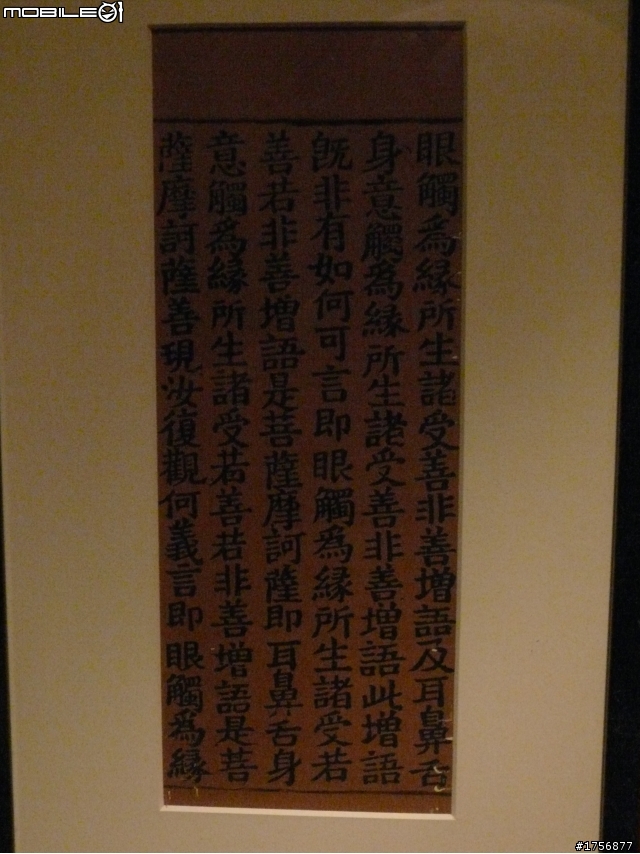 MOBILE01
眼觸為緣所生諸受善非善增語及耳鼻舌
身意觸為緣所生諸受善非善增語此增語
既非有如何可言即眼觸為緣所生諸受若
善若非善增語是菩薩摩訶薩即耳鼻舌身
意觸為緣所生諸受若善若非善增語是菩
薩摩訶薩善現汝復觀何義言即眼觸為緣
#1756877